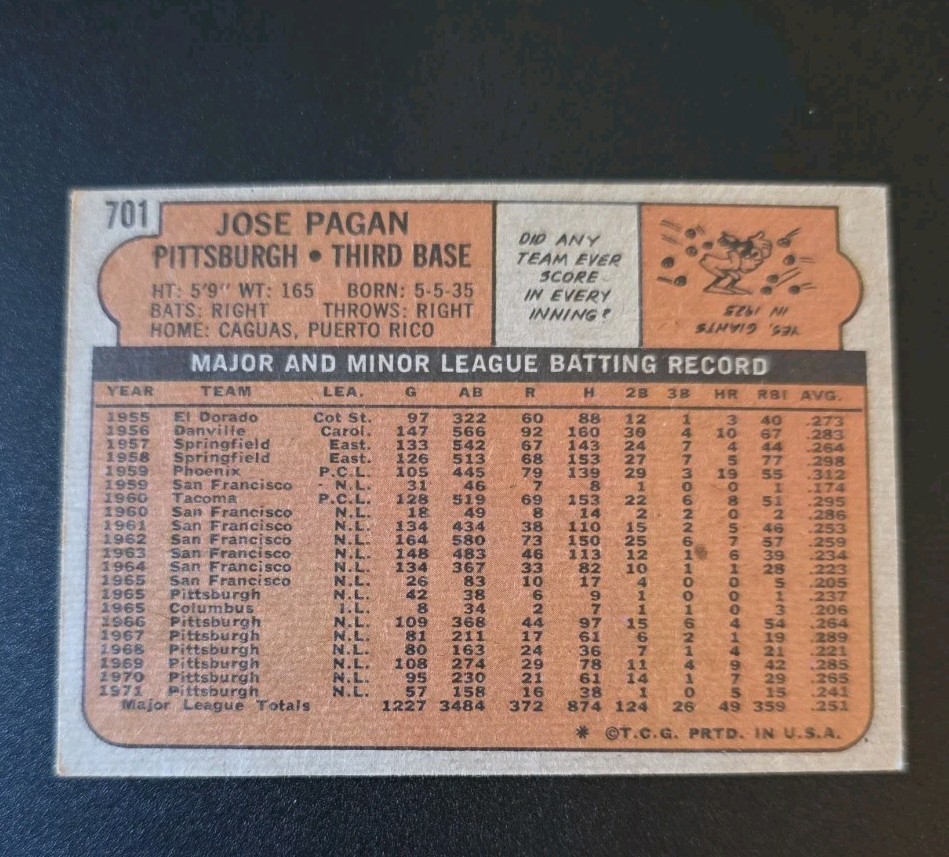 701
JOSE PAGAN
PITTSBURGH • THIRD BASE
HT: 5'9" WT: 165 BORN: 5-5-35
BATS: RIGHT THROWS: RIGHT
HOME: CAGUAS, PUERTO RICO
DID ANY
TEAM EVER
SCORE
IN EVERY
INNING?
YES, GIANTS
IN 1923
MAJOR AND MINOR LEAGUE BATTING RECORD
YEAR TEAM LEA. G AB R H 2B 3B HR RBI AVG.
1955 El Dorado Cot St. 97 322 60 88 12 1 3 40 .273
1956 Danville Carol. 147 566 92 160 30 4 10 67 .283
1957 Springfield East. 133 542 67 143 24 7 4 44 .264
1958 Springfield East. 126 513 68 153 27 7 5 77 .298
1959 Phoenix P.C.L. 105 445 79 139 29 3 19 55 .312
1959 San Francisco N.L. 31 46 7 8 1 0 0 1 .174
1960 Tacoma P.C.L. 128 519 69 153 22 6 8 51 .295
1960 San Francisco N.L. 18 49 8 14 2 2 0 2 .286
1961 San Francisco N.L. 134 434 38 110 15 2 5 46 .253
1962 San Francisco N.L. 164 580 73 150 25 6 7 57 .259
1963 San Francisco N.L. 148 483 46 113 12 1 6 39 .234
1964 San Francisco N.L. 134 367 33 82 10 1 1 28 .223
1965 San Francisco N.L. 26 83 10 17 4 0 0 5 .205
1965 Pittsburgh N.L. 42 38 6 9 1 0 0 1 .237
1965 Columbus I.L. 8 34 2 7 1 1 0 3 .206
1966 Pittsburgh N.L. 109 368 44 97 15 6 4 54 .264
1967 Pittsburgh N.L. 81 211 17 61 6 2 1 19 .289
1968 Pittsburgh N.L. 80 163 24 36 7 1 4 21 .221
1969 Pittsburgh N.L. 108 274 29 78 11 4 9 42 .285
1970 Pittsburgh N.L. 95 230 21 61 14 1 7 29 .265
1971 Pittsburgh N.L. 57 158 16 38 1 0 5 15 .241
Major League Totals 1227 3484 372 874 124 26 49 359 .251
* ©T.C.G. PRTD. IN U.S.A.